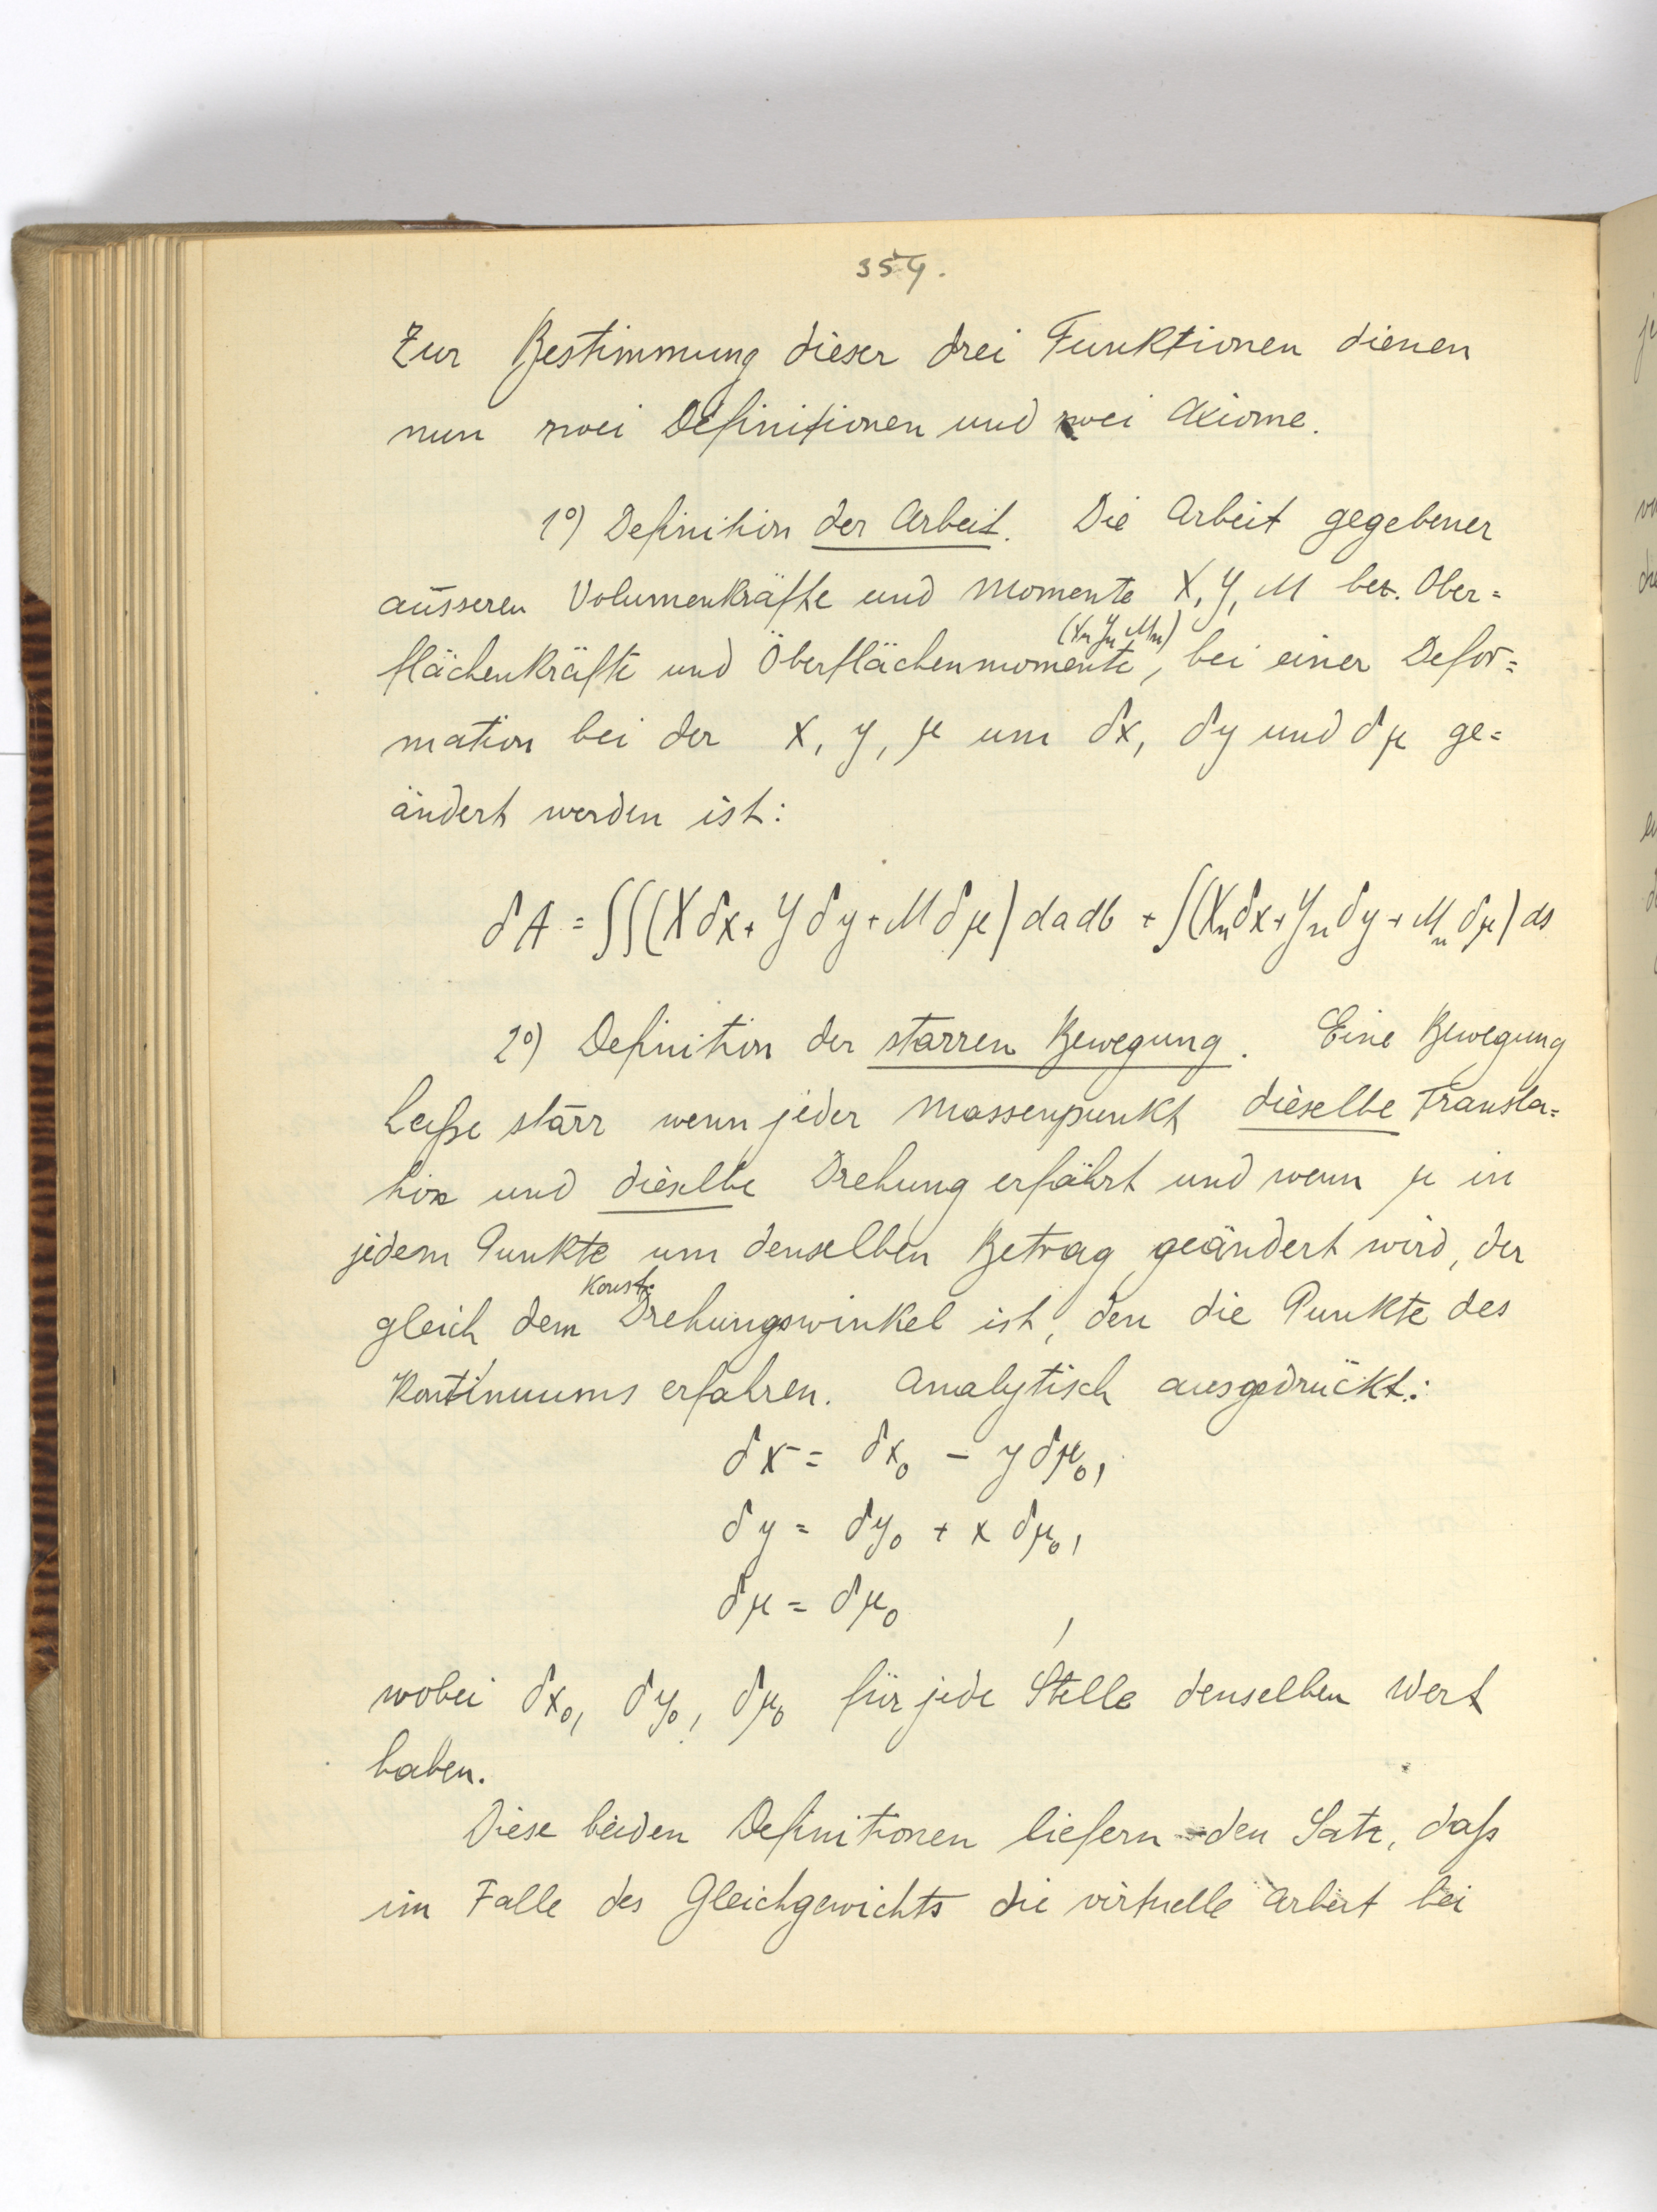 359.
Zur Bestimmung dieser drei Funktionen dienen
nun zwei Definitionen und zwei Axiome.
1°) Definition der Arbeit. Die Arbeit gegebener
äusseren Volumenkräfte und Momente X, Y, M bez. Ober=
(Xn Yn Mn)
flächenkräfte und Oberflächenmomente, bei einer Defor=
mation bei der x, y, μ um δx, δy und δμ ge=
ändert werden ist:
δA = ∫∫(Xδx + Yδy + Mδμ) da db + ∫(Xnδx + Ynδy + Mnδμ) ds
2°) Definition der starren Bewegung. Eine Bewegung
heiße starr wenn jeder Massenpunkt dieselbe Transla=
tion und dieselbe Drehung erfährt und wenn μ in
jedem Punkte um denselben Betrag geändert wird, der
konst.
gleich dem Drehungswinkel ist, den die Punkte des
Kontinuums erfahren. Analytisch ausgedrückt:
δx = δx₀ − yδμ₀,
δy = δy₀ + xδμ₀,
δμ = δμ₀ ,
wobei δx₀, δy₀, δμ₀ für jede Stelle denselben Wert
haben.
Diese beiden Definitionen liefern den Satz, daß
im Falle des Gleichgewichts die virtuelle Arbeit bei